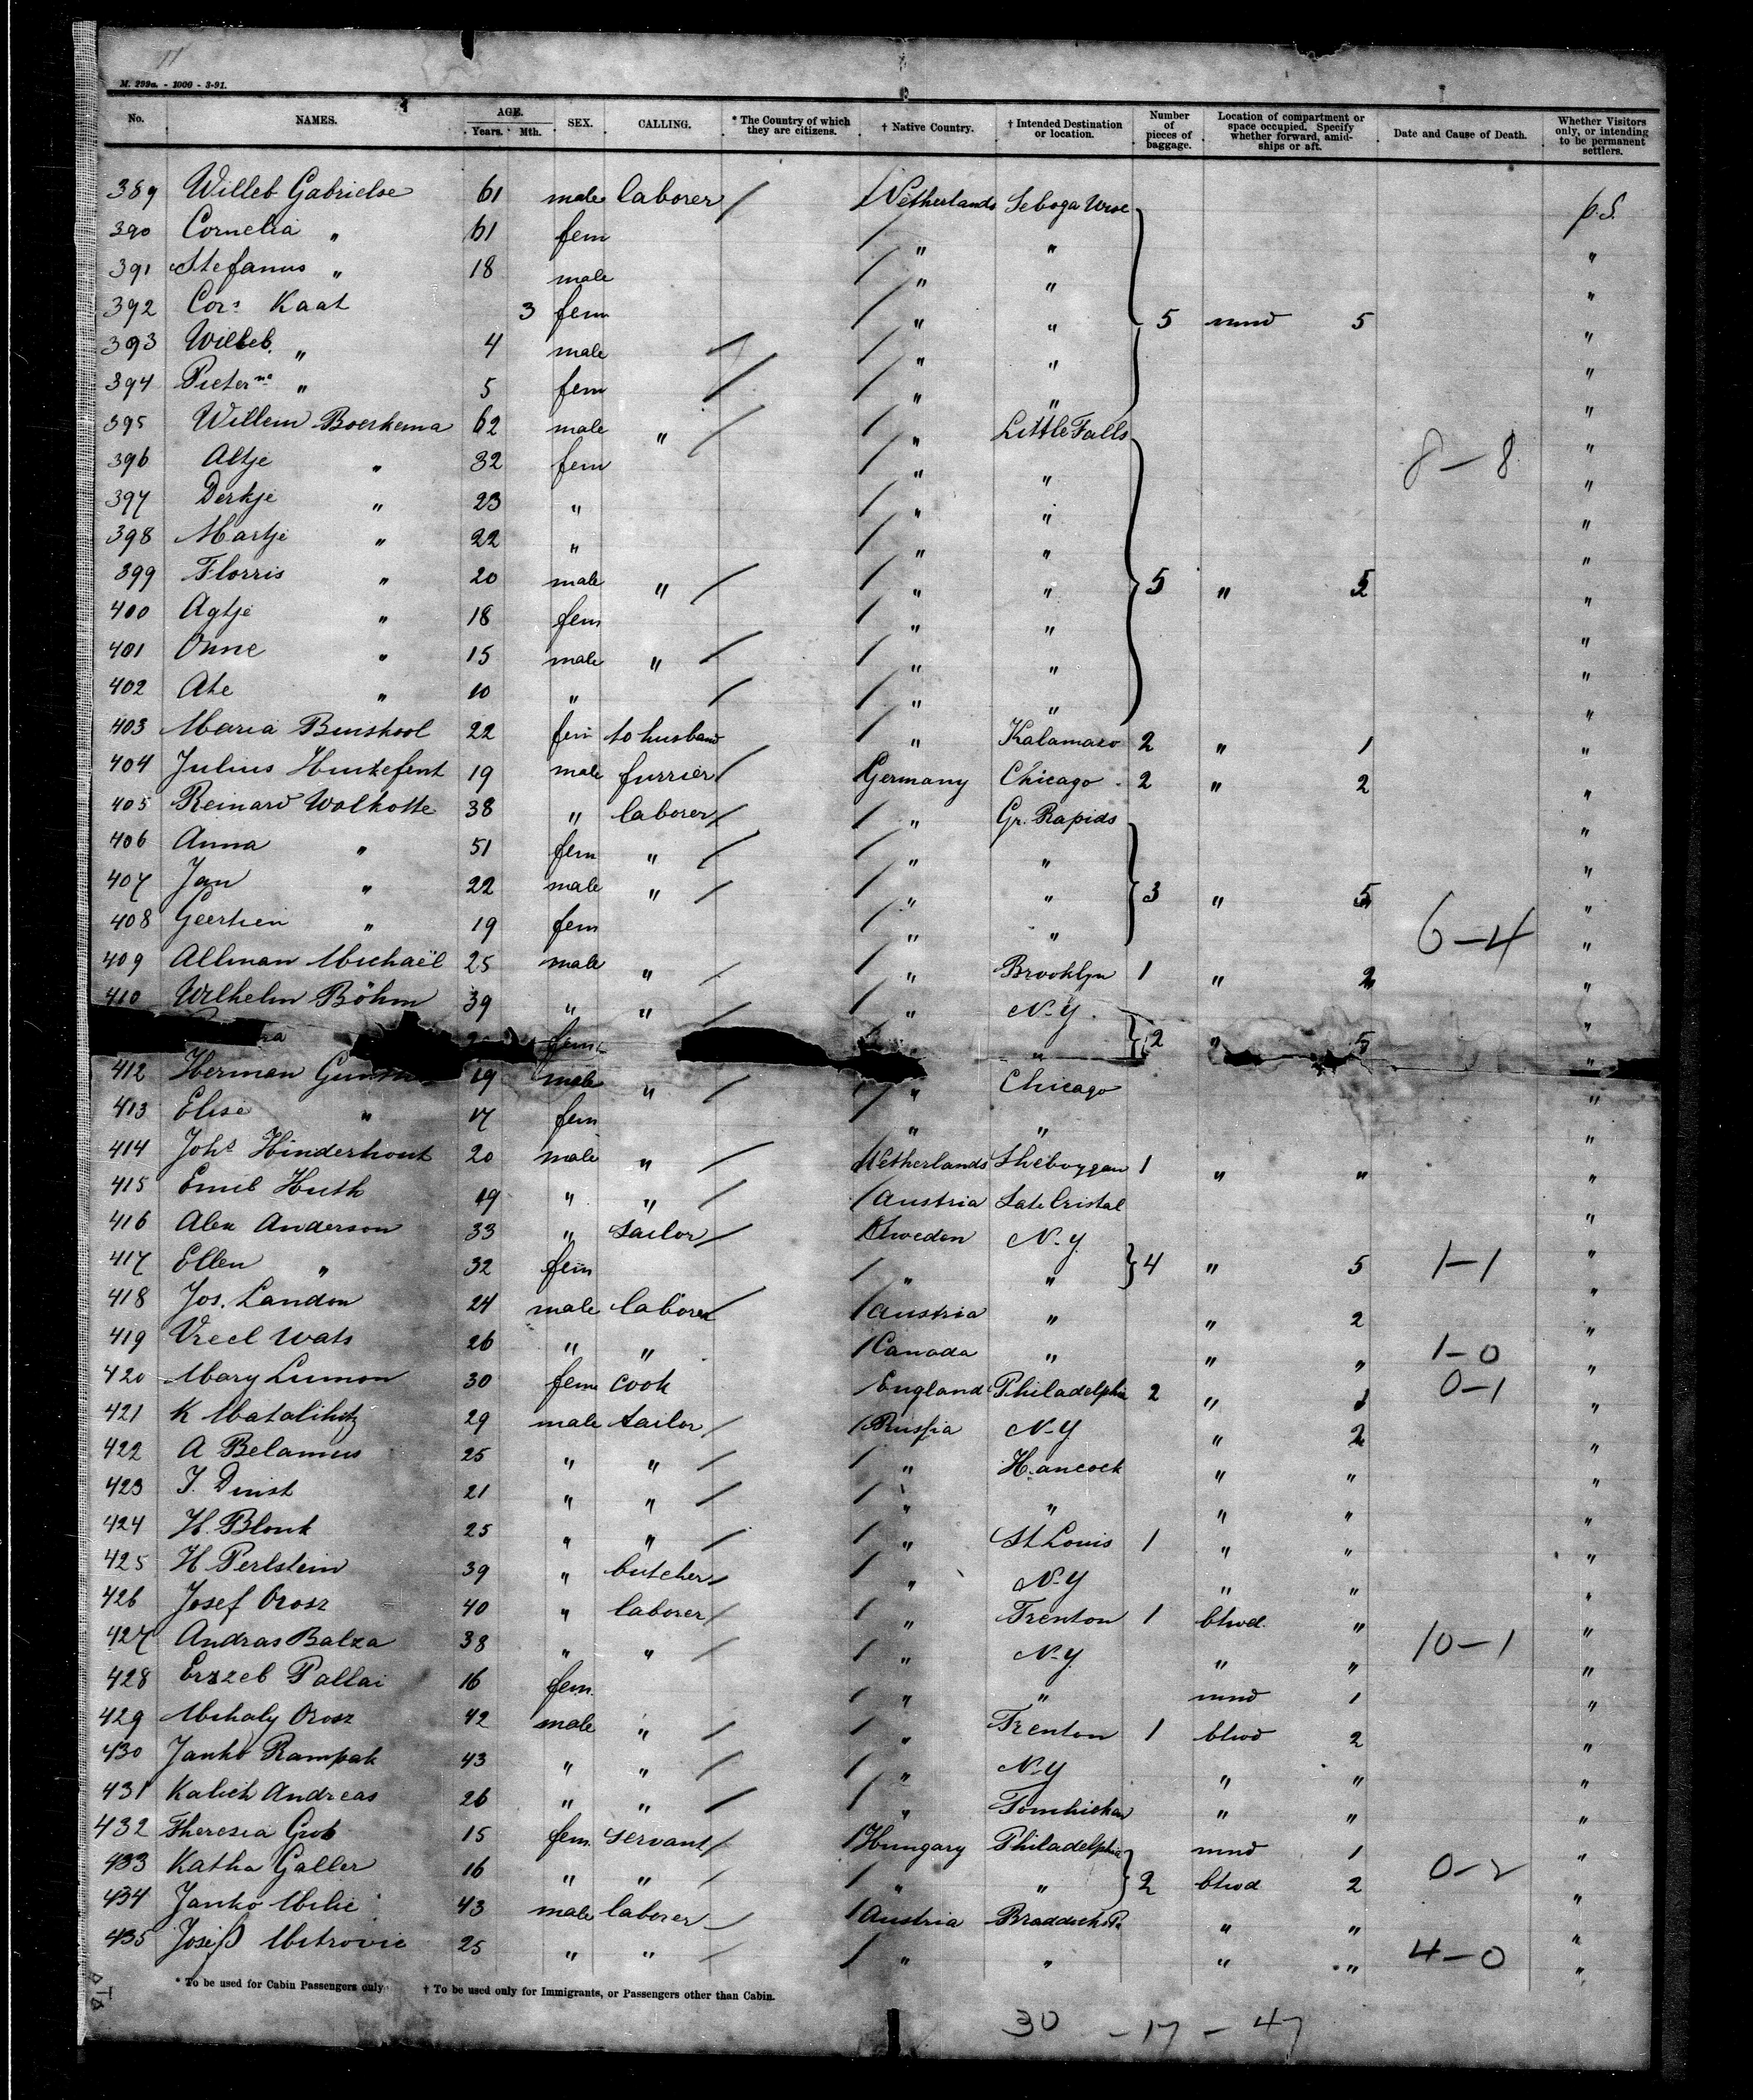 11
M. 299a. - 1000 - 3-91.
No. NAMES. AGE. Years. Mth. SEX. CALLING. * The Country of which they are citizens. † Native Country. † Intended Destination or location. Number of pieces of baggage. Location of compartment or space occupied. Specify whether forward, amidships or aft. Date and Cause of Death. Whether Visitors only, or intending to be permanent settlers.
389 Willeb Gabrielse 61 male laborer / Netherlands p.S.
390 Cornelia " 61 fem / " " "
391 Stefanus " 18 male / " " "
392 Cors Kaat 3 fem / " " 5 mnd 5 "
393 Willeb. " 4 male / / " " "
394 Pieterna " 5 fem / / " " "
395 Willem Boerkema 62 male " / / " Little Falls "
396 Altje " 32 fem / " " 8-8 "
397 Derkje " 23 " / " " "
398 Martje " 22 " / " " "
399 Florris " 20 male " / / " " 5 " 5 "
400 Agtje " 18 fem / " " "
401 Onne " 15 male " / / " " "
402 Ate " 10 " / / " " "
403 Maria 22 fem to husband / " Kalamazo 2 " 1 "
404 Julius 19 male furrier / Germany Chicago 2 " 2 "
405 Reinard Wolkotte 38 " laborer / / " Gr. Rapids "
406 Anna " 51 fem " / / " " "
407 Jan " 22 male " / / " " 3 " 5 "
408 Geertien " 19 fem / " " 6-4 "
409 Allman Michaël 25 male " / / " Brooklyn 1 " 2 "
410 Wilhelm Böhm 39 " " / / " N.Y. "
fem " 2 " 5 "
412 Herman 19 male " / / " Chicago "
413 Elise " 17 fem " " "
414 Johs Hinderhout 20 male " / Netherlands Sheboygan 1 " " "
415 Emil Huth 19 " " / / Austria "
416 Alex Anderson 33 " Sailor / / Sweden N.Y. "
417 Ellen " 32 fem / " " 4 " 5 1-1 "
418 Jos. Landon 24 male laborer / / Austria " " 2 "
419 Vreel Wats 26 " " / Canada " " " 1-0 "
420 Mary Lumon 30 fem cook / England Philadelphia 2 " 1 0-1 "
421 29 male tailor / / Russia N.Y " 2 "
422 A Belamus 25 " " / / " Hancock " " "
423 21 " " / / " " " " "
424 H. Blonk 25 " " / / " St Louis 1 " " "
425 H Perlstein 39 " butcher / / " N.Y " " "
426 Josef Orosz 40 " laborer / / " Trenton 1 btwd. " "
427 Andras Balza 38 " " / " N.Y. " " 10-1 "
428 Erszeb Pallai 16 fem. / " " mnd 1 "
429 Mihaly Orosz 42 male " / / " Trenton 1 btwd 2 "
430 Janko Rampak 43 " " / / " N.Y " " "
431 Kalich Andreas 26 " " / / " " " "
432 Theresia Grob 15 fem. servant / / Hungary Philadelphia mnd 1 "
433 Katha Galler 16 " " / / " " 2 btwd 2 0-2 "
434 Janko Milic 43 male laborer / / Austria " " "
435 Josip Mitrovic 25 " " / / " " " " 4-0 "
* To be used for Cabin Passengers only. † To be used only for Immigrants, or Passengers other than Cabin.
30 - 17 - 47